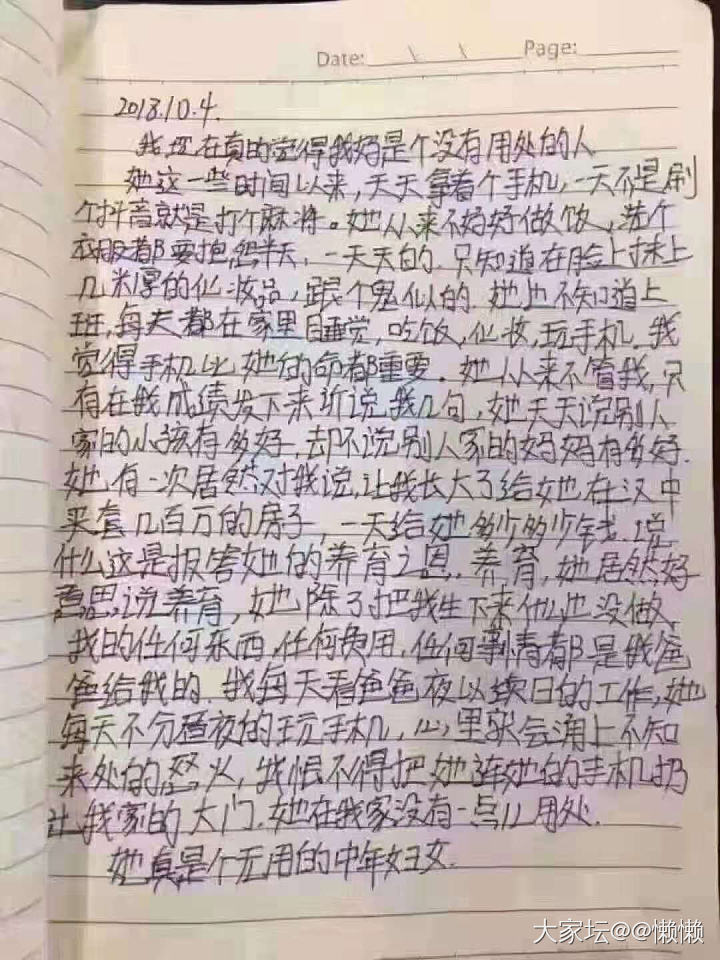 Date: \ \ Page:
2018.10.4.
我现在真的觉得我妈是个没有用处的人
她这一些时间以来，天天拿着个手机，一天不是刷
个抖音就是打个麻将。她从来不好好做饭，洗个
衣服都要抱怨半天，一天天的，只知道在脸上抹上
几米厚的化妆品，跟个鬼似的，她也不知道上
班，每天都在家里睡觉，吃饭，化妆，玩手机。我
觉得手机比她的命都重要。她从来不管我，只
有在我成绩发下来听说我几句，她天天说别人
家的小孩有多好，却不说别人家的妈妈有多好。
她有一次居然对我说，让我长大了给她在汉中
买套几百万的房子，一天给她多少多少钱，说
什么这是报答她的养育之恩，养育，她居然好
意思说养育，她除了把我生下来什么也没做，
我的任何东西，任何费用，任何事情都是我爸
爸给我的。我每天看爸爸夜以续日的工作，她
每天不分昼夜的玩手机，心里就会涌上不知
来处的怒火，我恨不得把她连她的手机扔
出我家的大门，她在我家没有一点儿用处。
她真是个无用的中年妇女。
大家坛@@懒懒